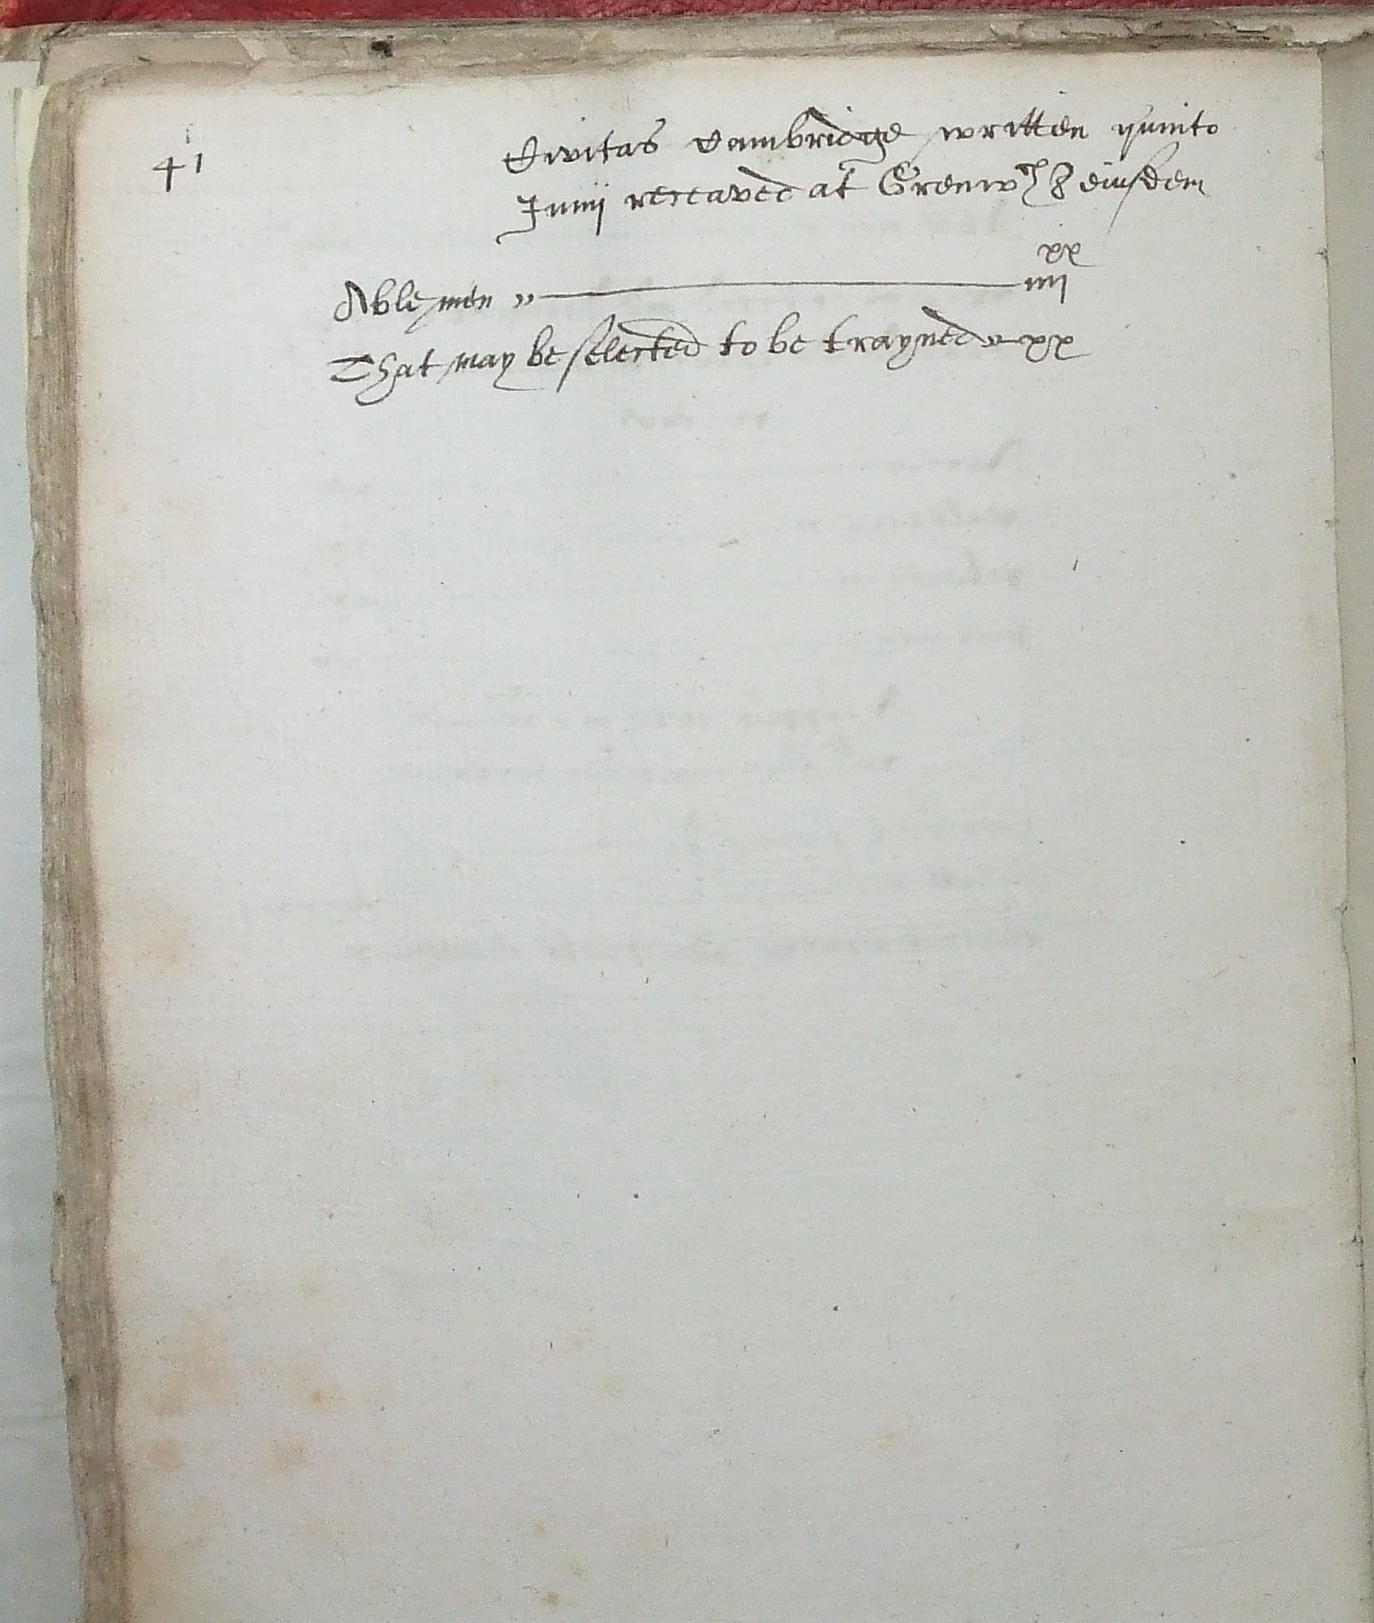 41
Civitas Cambridge written quinto
Junij receaved at Grenwch 8 eiusdem
xx
Able men ,, iiij
That may be selected to be trayned xx